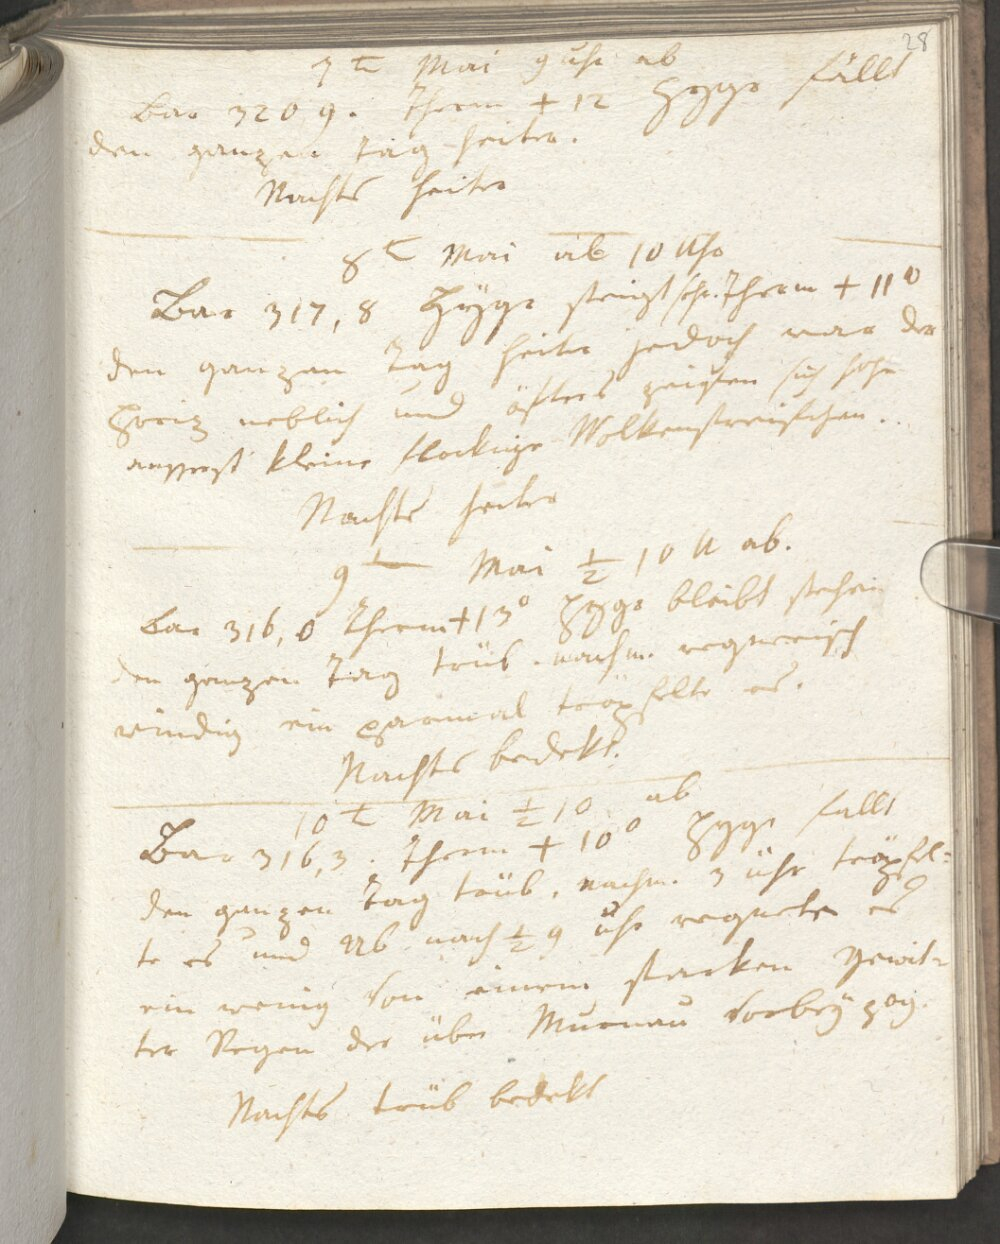 28
7t Mai 9 Uhr ab
Bar 320 9. Therm + 12 Hygr fällt
den ganzen Tag heiter.
Nachts heiter
8t Mai ab 10 Uhr
Bar 317, 8 Hygr steigt sehr. Therm + 11°
den ganzen Tag heiter jedoch war der
Horiz neblich und öfters zeigten sich hohe
aeusserst kleine flockige Wolkenstreifchen..
Nachts heiter
9t Mai ½ 10 U ab.
Bar 316, 0 Therm + 13° Hygr bleibt stehen
den ganzen Tag trüb. nachm. regnerisch
windig ein paarmal tröpfelte es.
Nachts bedekt.
10t Mai ½ 10 ab
Bar 316,3. Therm + 10° Hygr fallt
den ganzen Tag trüb. nachm. 3 Uhr tröpfel=
te es und Ab nach ½ 9 Uhr regnete es
ein wenig von einem starken Gewit=
ter Regen der über Murnau vorbey zog.
Nachts trüb bedekt